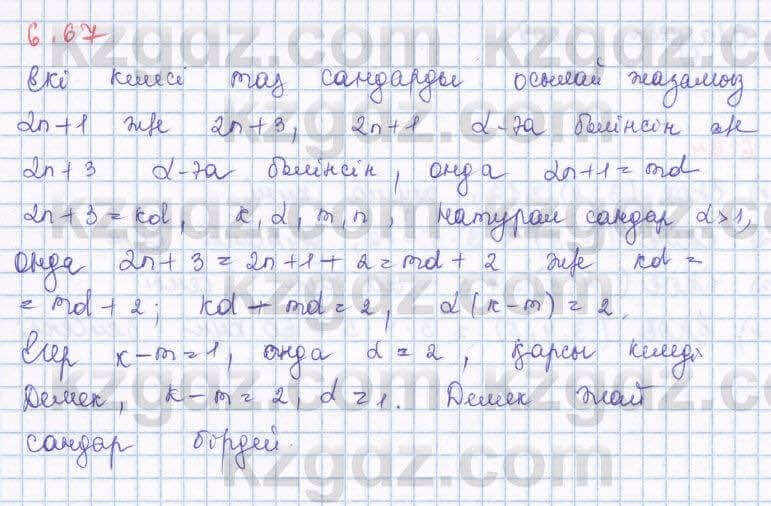 6.67
Екі келесі тақ сандарды осылай жазамыз
2n+1 және 2n+3, 2n+1 d-ға бөлінсін және
2n+3 d-ға бөлінсін, онда 2n+1=md
2n+3=kd, k, d, m, n, натурал сандар d>1,
онда 2n+3=2n+1+2=md+2 және kd=
=md+2; kd-md=2, d(k-m)=2.
Егер k-m=1, онда d=2, қарсы келеді
Демек, k-m=2, d=1. Демек жай
сандар бірдей.
kzgdz.com